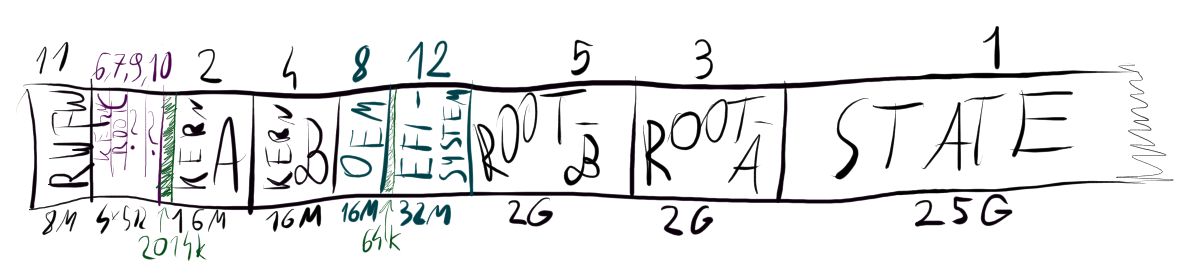 11 6,7,9,10 2 4 8 12 5 3 1
RWFW KERN ROOT C ? ? KERN A KERN B OEM EFI-SYSTEM ROOT-B ROOT-A STATE
8M 16M 16M 16M 32M 2G 2G 25G
2014k 64k